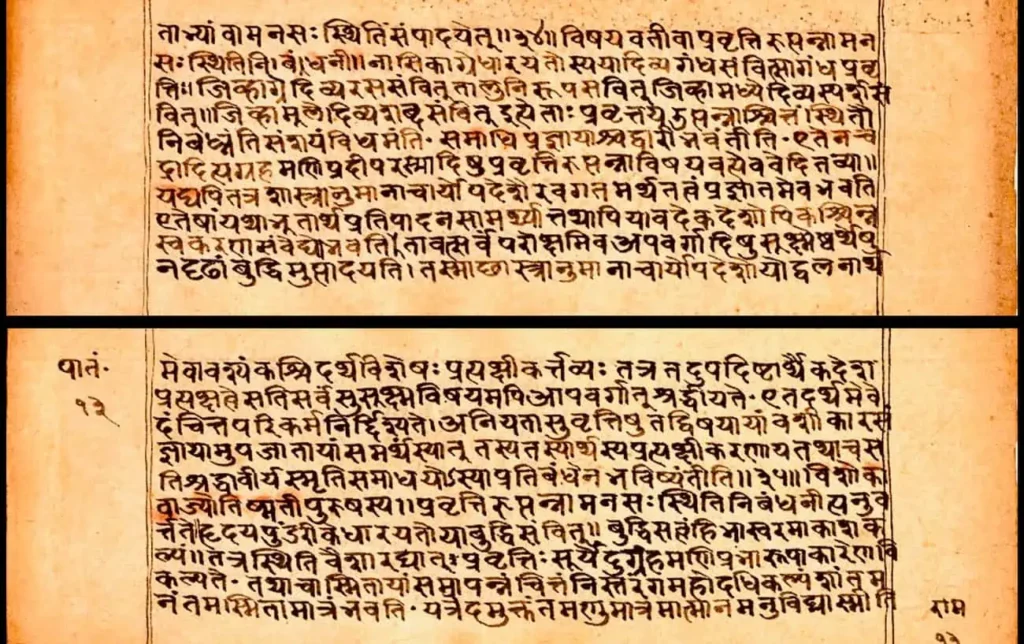 ताभ्यां वा मनसः स्थितिं संपादयेत्॥३४॥ विषयवती वा प्रवृत्तिरुत्पन्ना मन
सः स्थितिनिबंधनी॥ नासिकाग्रे धारयतोस्य या दिव्यगंधसंवित्सा गंधप्रवृ
त्तिः॥ जिव्हाग्रे दिव्यरससंवित् तालुनि रूपसंवित् जिव्हामध्ये दिव्यस्पर्शसं
वित्॥ जिव्हामूले दिव्यशब्दसंवित् इत्येताः प्रवृत्तय उत्पन्नाश्चित्तं स्थितौ
निबध्नंति संशयं विधमंति· समाधिप्रज्ञायाश्च द्वारीभवंतीति· एतेन चं
द्रादित्यग्रहमणिप्रदीपरत्नादिषु प्रवृत्तिरुत्पन्ना विषयवत्येव वेदितव्या॥
यद्यपि तत्र शास्त्रानुमानाचार्योपदेशैरवगतमर्थतत्वं प्रज्ञातमेव भवति
एतेषां यथाभूतार्थप्रतिपादनसामर्थ्यात् तथापि यावदेकदेशोपि कश्चिन्न
स्वकरणसंवेद्यो भवति। तावत्सर्वं परोक्षमिव अपवर्गादिषु सूक्ष्मेष्वर्थेषु
न दृढां बुद्धिमुत्पादयति। तस्माछास्त्रानुमानाचार्योपदेशोपोद्वलनार्थ
पातं·
१३
मेवावश्यं कश्चिदर्थविशेषः प्रत्यक्षीकर्त्तव्यः तत्र तदुपदिष्टार्थैकदेश
प्रत्यक्षत्वे सति सर्वं सुसूक्ष्मविषयमपि आपवर्गात् श्रद्धीयते· एतदर्थमेवे
दं चित्तपरिकर्म निर्द्दिश्यते। अनियतासु वृत्तिषु तद्विषयायां वशीकारसं
ज्ञायामुपजातायां समर्थं स्यात् तस्य तस्यार्थस्य प्रत्यक्षीकरणाय तथा च स
ति श्रद्धावीर्यस्मृतिसमाधयोऽस्याप्रतिबंधेन भविष्यंतीति॥३५॥ विशोका
वा ज्योतिष्मती पुरुषस्य॥ प्रवृत्तिरुत्पन्ना मनसः स्थितिनिबंधनीत्यनुव
र्त्तते॥ हृदयपुंडरीके धारयतो या बुद्धिसंवित्॥ बुद्धिसत्वं हि भास्वरमाकाशक
ल्पं॥ तत्र स्थितिवैशारद्यात् प्रवृत्तिः सूर्येंदुग्रहमणिप्रभारूपाकारेण वि
कल्पते· तथा चास्मितायां समापन्नं चित्तं निस्तरंगमहोदधिकल्पं शांतम
नंतमस्मितामात्रं भवति· यत्रेदमुक्तं तमणुमात्रमात्मानमनुविद्यास्मीति
राम
१३